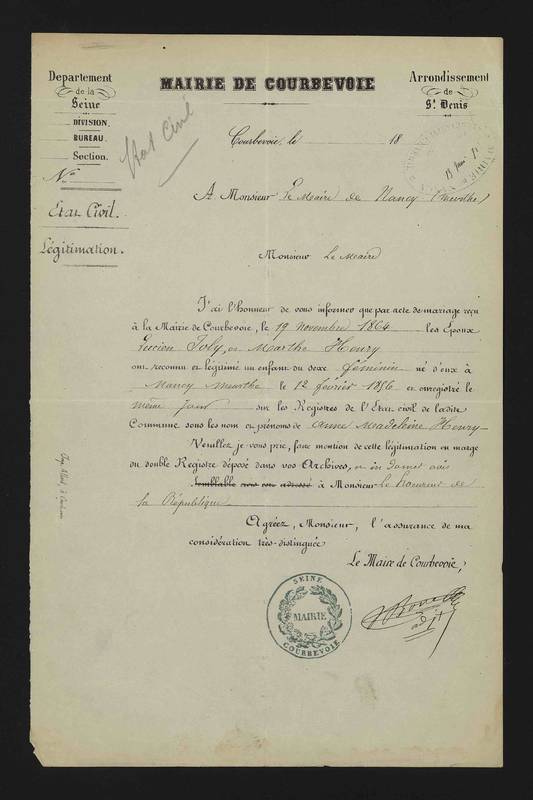 Departement
de la
Seine
DIVISION.
BUREAU.
Section.
N°
Etat Civil.
Légitimation.
Etat Civil
MAIRIE DE COURBEVOIE
Arrondissement
de
St Denis
Courbevoie, le 18
A Monsieur Le Maire de Nancy (Meurthe)
Monsieur Le Maire
J'ai l'honneur de vous informer que par acte de mariage reçu
à la Mairie de Courbevoie, le 19 novembre 1864 les Epoux
Lucien Joly, et Marthe Henry
ont reconnu et légitimé un enfant du sexe féminin né d'eux à
Nancy Meurthe le 12 février 1856 et enregistré le
même jour sur les Registres de l'Etat civil de ladite
Commune sous les nom et prénoms de Anne Madeleine Henry
Veuillez je vous prie, faire mention de cette légitimation en marge
du double Registre déposé dans vos Archives, et en donner avis
semblable avis est adressé à Monsieur le Procureur de
la République
Agréez, Monsieur, l'assurance de ma
considération très-distinguée
Le Maire de Courbevoie,
adjt
SEINE
MAIRIE
COURBEVOIE